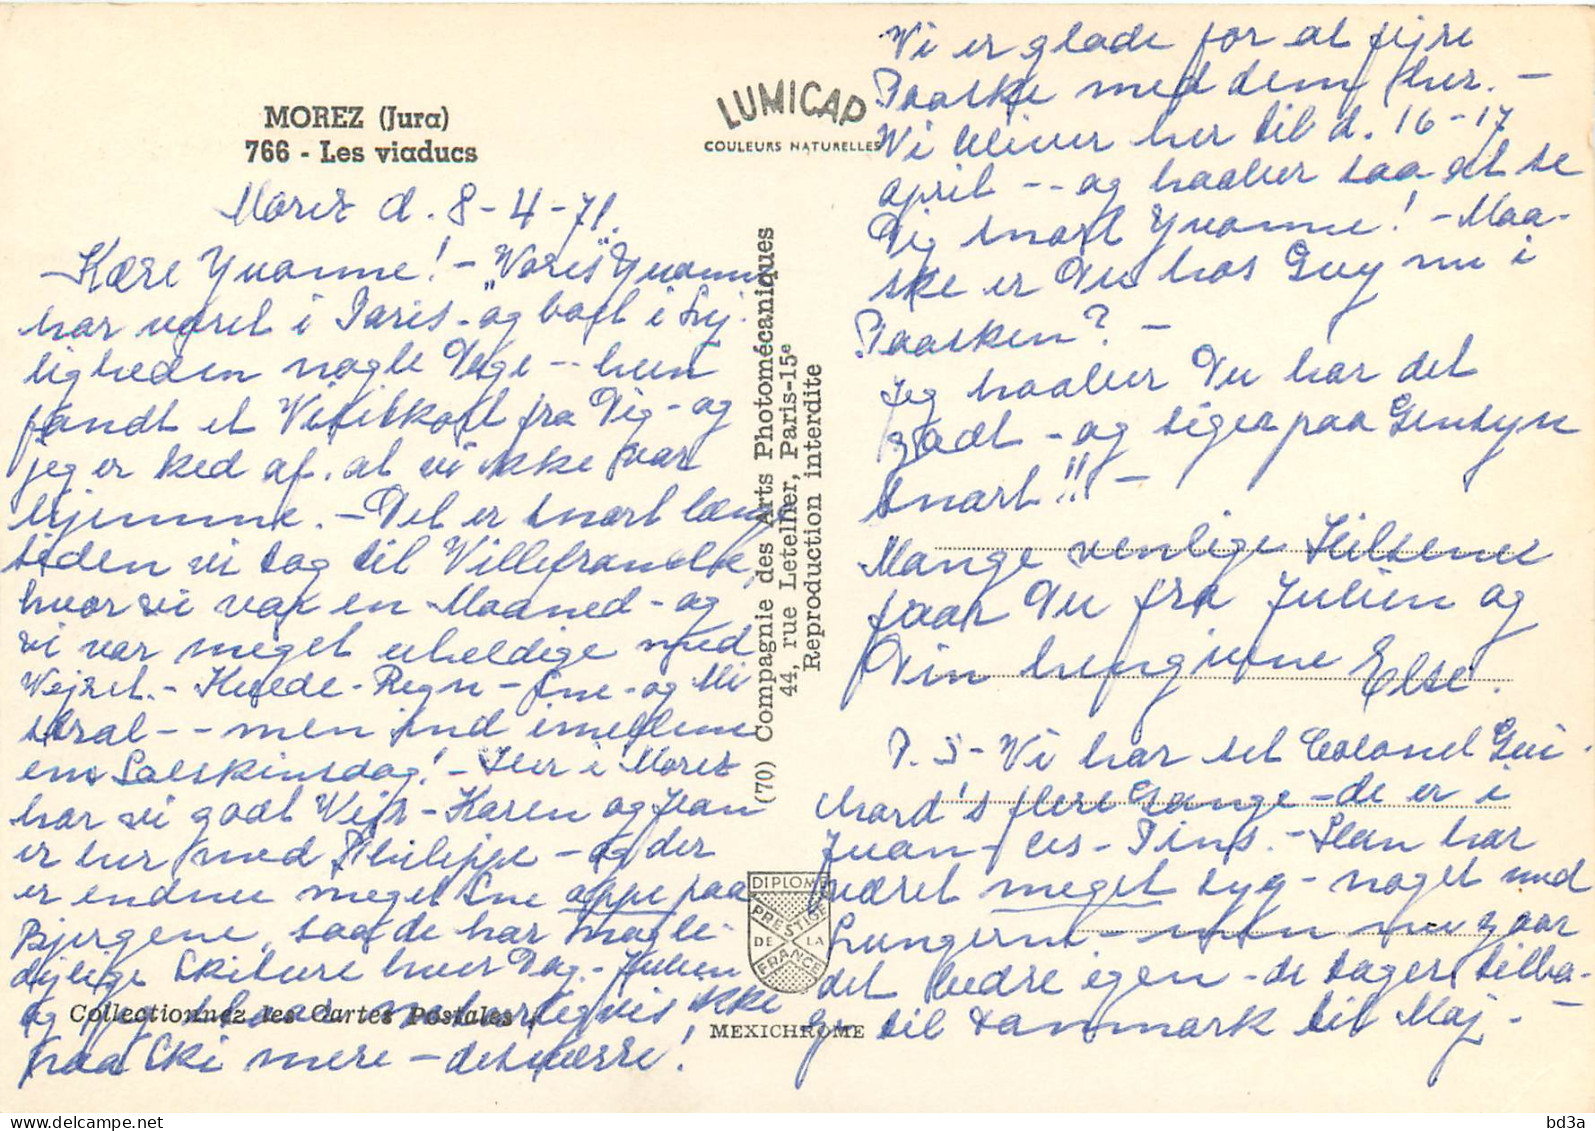 MOREZ (Jura)
766 - Les viaducs
LUMICAP
COULEURS NATURELLES
Morez d. 8-4-71.
Kære Yvonne! - "Vores" Yvonne
har været i Paris - og boet i Lej-
ligheden nogle Dage -- hun
fandt et Visitkort fra Dig - og
jeg er ked af. at vi ikke var
hjemme. - Det er snart længe
siden vi tog til Villefranche,
hvor vi var en Maaned - og
vi var meget uheldige med
Vejret. - Kulde - Regn - Sne - og Mi
stral -- men ind imellem
en Solskinsdag! - Her i Morez
har vi godt Vejr - Karen og Jean
er her med Philippe - og der
er endnu meget Sne oppe paa
Bjergene, saa de har nogle
dejlige Skiture hver Dag. - Julien
og jeg staar naturligvis ikke
paa Ski mere - desværre!
Collectionnez les Cartes Postales
(70) Compagnie des Arts Photomécaniques
44, rue Letellier, Paris-15e
Reproduction interdite
DIPLOME
PRESTIGE
DE LA
FRANCE
MEXICHROME
Vi er glade for at fejre
Paaske med dem her. -
Vi bliver her til d. 16-17
april -- og haaber saa at se
Dig snart Yvonne! - Maa-
ske er Du hos Guy nu i
Paasken? -
Jeg haaber Du har det
godt - og siger paa Gensyn
snart!! -
Mange venlige Hilsener
faar Du fra Julien og
Din hengivne Else.
P.S - Vi har set Colonel Gui-
chard's flere Gange - de er i
Juan-les-Pins. - Han har
været meget syg - noget med
Lungerne - men nu gaar
det bedre igen - de tager tilba-
ge til Danmark til Maj. -